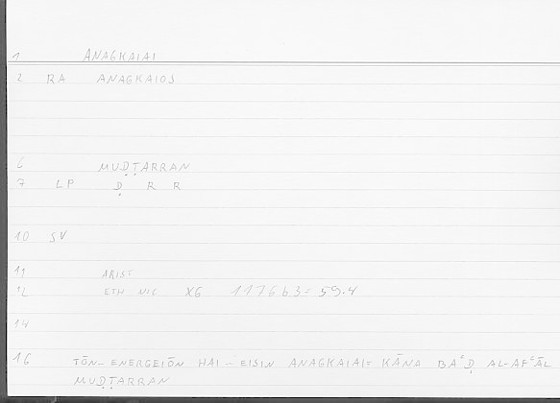 1 ANAGKAIAI
2 RA ANAGKAIOS
6 MUḌṬARRAN
7 LP Ḍ R R
10 SV
11 ARIST
12 ETH NIC X6 1176b3 = 59.4
14
16 TŌN-ENERGEIŌN HAI-EISIN ANAGKAIAI = KĀNA BAʿḌ AL-AFʿĀL
MUḌṬARRAN